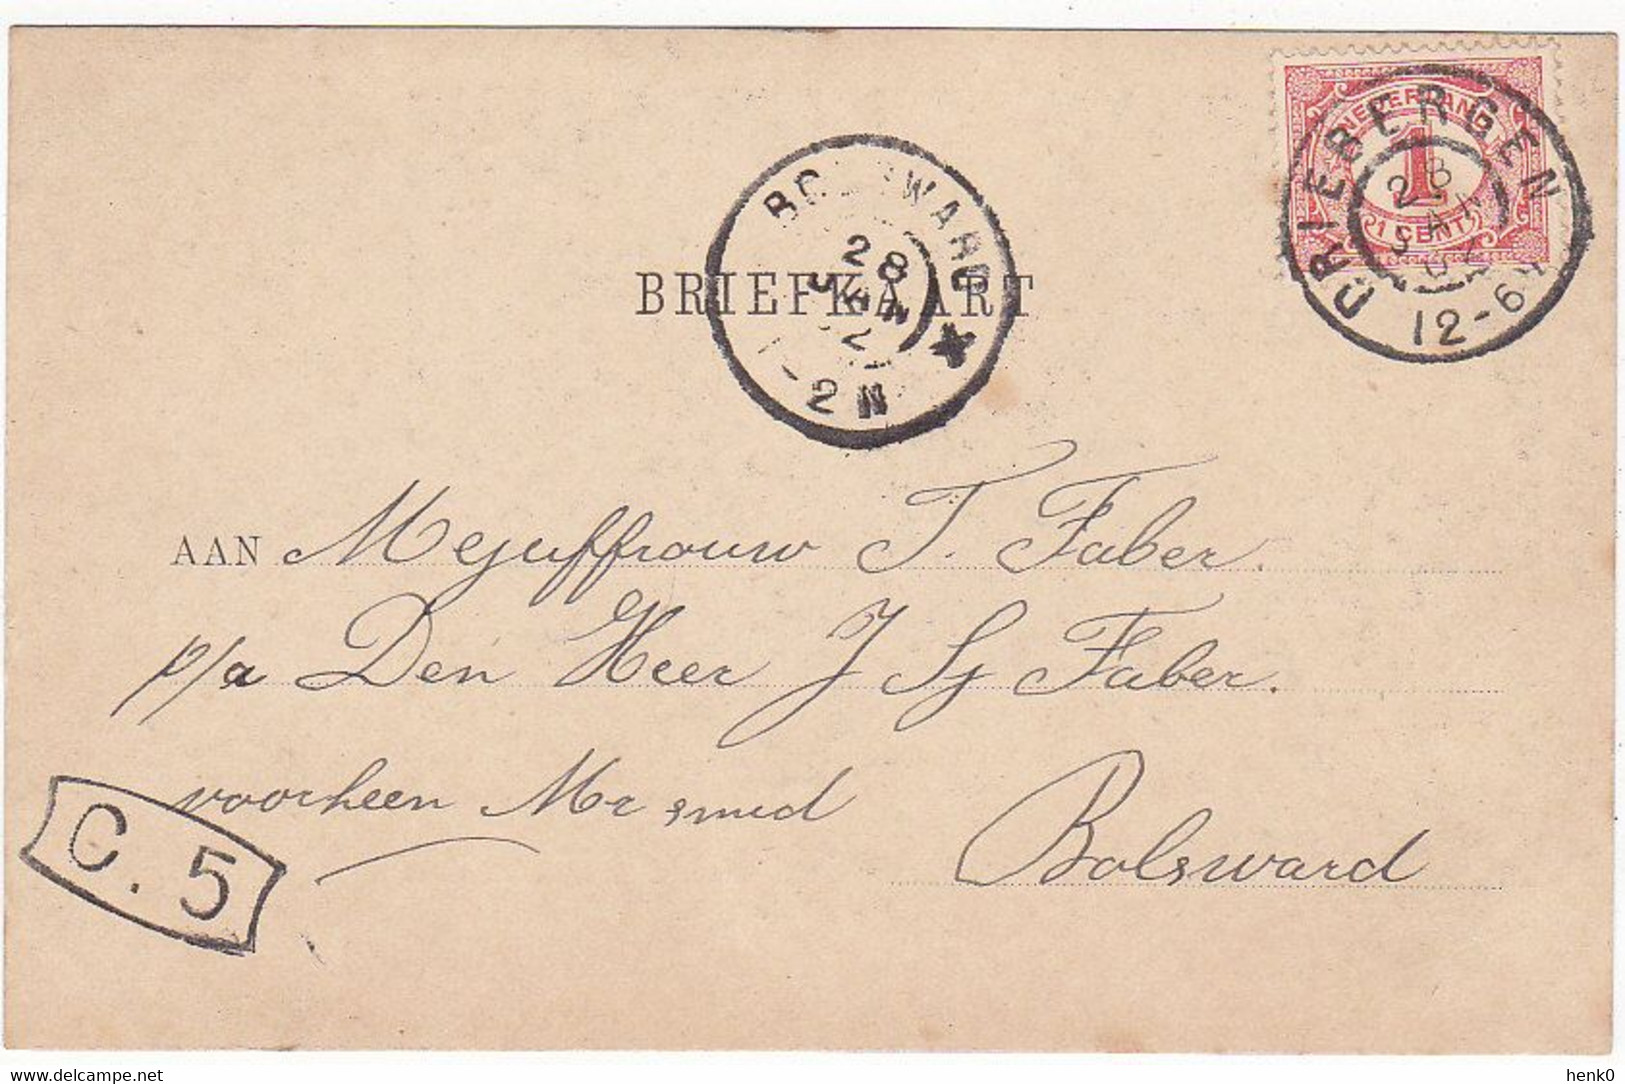 NEDERLAND
1
1 CENT
DRIEBERGEN
28
JAN
02
12-6V
BOLSWARD
28
JAN
2
1-2N
BRIEFKAART
AAN Mejuffrouw T. Faber.
p/a Den Heer J Sj Faber.
voorheen Mr smid
Bolsward
C. 5
delcampe.net
henk0